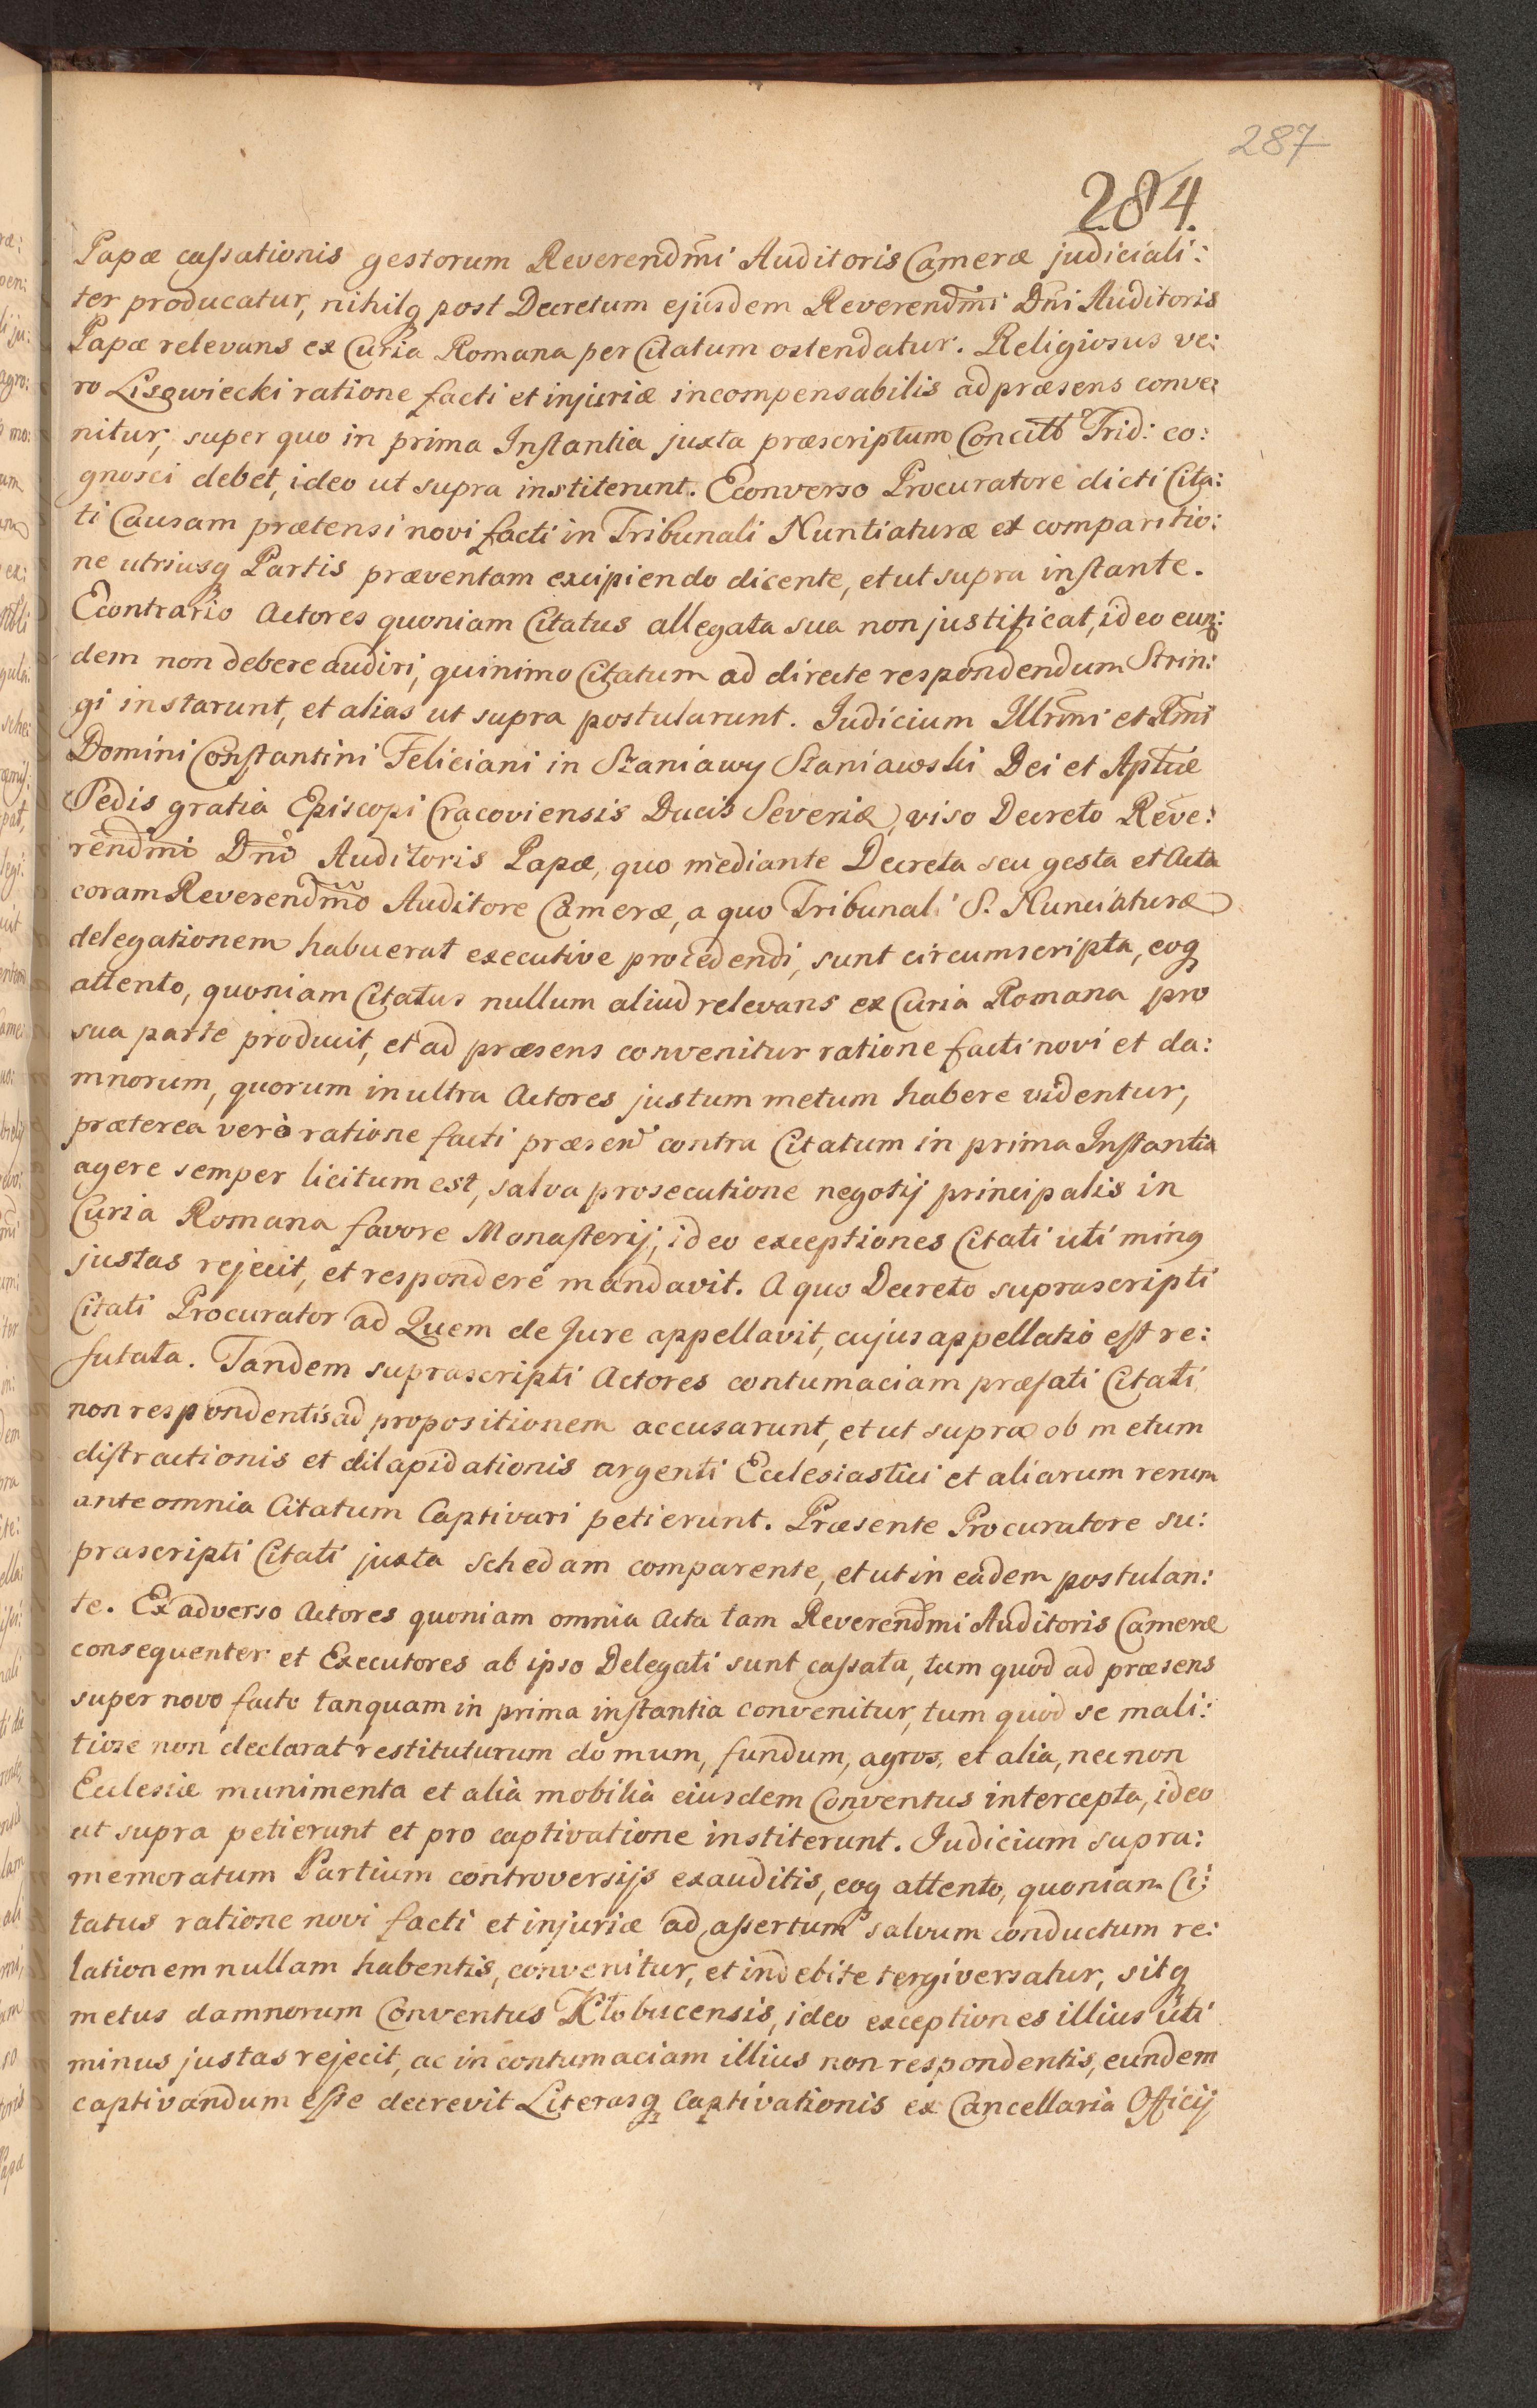 287
284.
Papæ cassationis gestorum Reverendm̃i Auditoris Cameræ judiciali:
ter producatur, nihilq post Decretum ejusdem Reverendm̃i Dñi Auditoris
Papæ relevans ex Curia Romana per Citatum ostendatur. Religiosus ve:
ro Lisowiecki ratione facti et injuriæ incompensabilis ad præsens conve:
nitur, super quo in prima Instantia juxta præscriptum Trid: co:
gnosci debet, ideo ut supra institerunt. Econverso Procuratore dicti Cita:
ti Causam prætensi novi facti in Tribunali Nuntiaturæ et comparitio:
ne utriusq Partis præventam excipiendo dicente, et ut supra instante.
Econtrario Actores quoniam Citatus allegata sua non justificat, ideo eun:
dem non debere audiri, quinimo Citatum ad directe respondendum Strin:
gi instarunt, et alias ut supra postularunt. Iudicium Illrm̃i et Rm̃i
Domini Constantini Feliciani in Szaniawy Szaniawski Dei et Aptcæ
Sedis gratia Episcopi Cracoviensis Ducis Severiæ, viso Decreto Reve:
rendm̃i Dñi Auditoris Papæ, quo mediante Decreta seu gesta et Acta
coram Reverendm̃o Auditore Cameræ, a quo Tribunali S. Nunciaturæ
delegationem habuerat executive procedendi, sunt circumscripta, eoq
attento, quoniam Citatus nullum aliud relevans ex Curia Romana pro
sua parte producit, et ad præsens convenitur ratione facti novi et da:
mnorum, quorum in ultra Actores justum metum habere videntur,
præterea verò ratione facti præsen contra Citatum in prima Instantia
agere semper licitum est, salva prosecutione negotij principalis in
Curia Romana favore Monasterij, ideo exceptiones Citati uti minq
justas rejecit, et respondere mandavit. A quo Decreto suprascripti
Citati Procurator ad Quem de Jure appellavit, cujus appellatio est re:
futata. Tandem suprascripti Actores contumaciam præfati Citati
non respondentis ad propositionem accusarunt, et ut supra ob metum
distractionis et dilapidationis argenti Ecclesiastici et aliarum rerum
ante omnia Citatum Captivari petierunt. Præsente Procuratore su:
prascripti Citati juxta schedam comparente, et ut in eadem postulan:
te. Ex adverso Actores quoniam omnia Acta tam Reverendm̃i Auditoris Cameræ
consequenter et Executores ab ipso Delegati sunt cassata, tum quod ad præsens
super novo facto tanquam in prima instantia convenitur, tum quod se mali:
tiose non declarat restituturum domum, fundum, agros, et alia, nec non
Ecclesiæ munimenta et alia mobilia eiusdem Conventus intercepta, ideo
ut supra petierunt et pro captivatione institerunt. Iudicium supra:
memoratum Partium controversijs exauditis, eoq attento, quoniam Ci:
tatus ratione novi facti et injuriæ ad assertum salvum conductum re:
lationem nullam habentis, convenitur, et indebite tergiversatur, sitq
metus damnorum Conventus Kłobucensis, ideo exceptiones illius uti
minus justas rejecit, ac in contumaciam illius non respondentis, eundem
captivandum esse decrevit Literasq Captivationis ex Cancellaria Officij